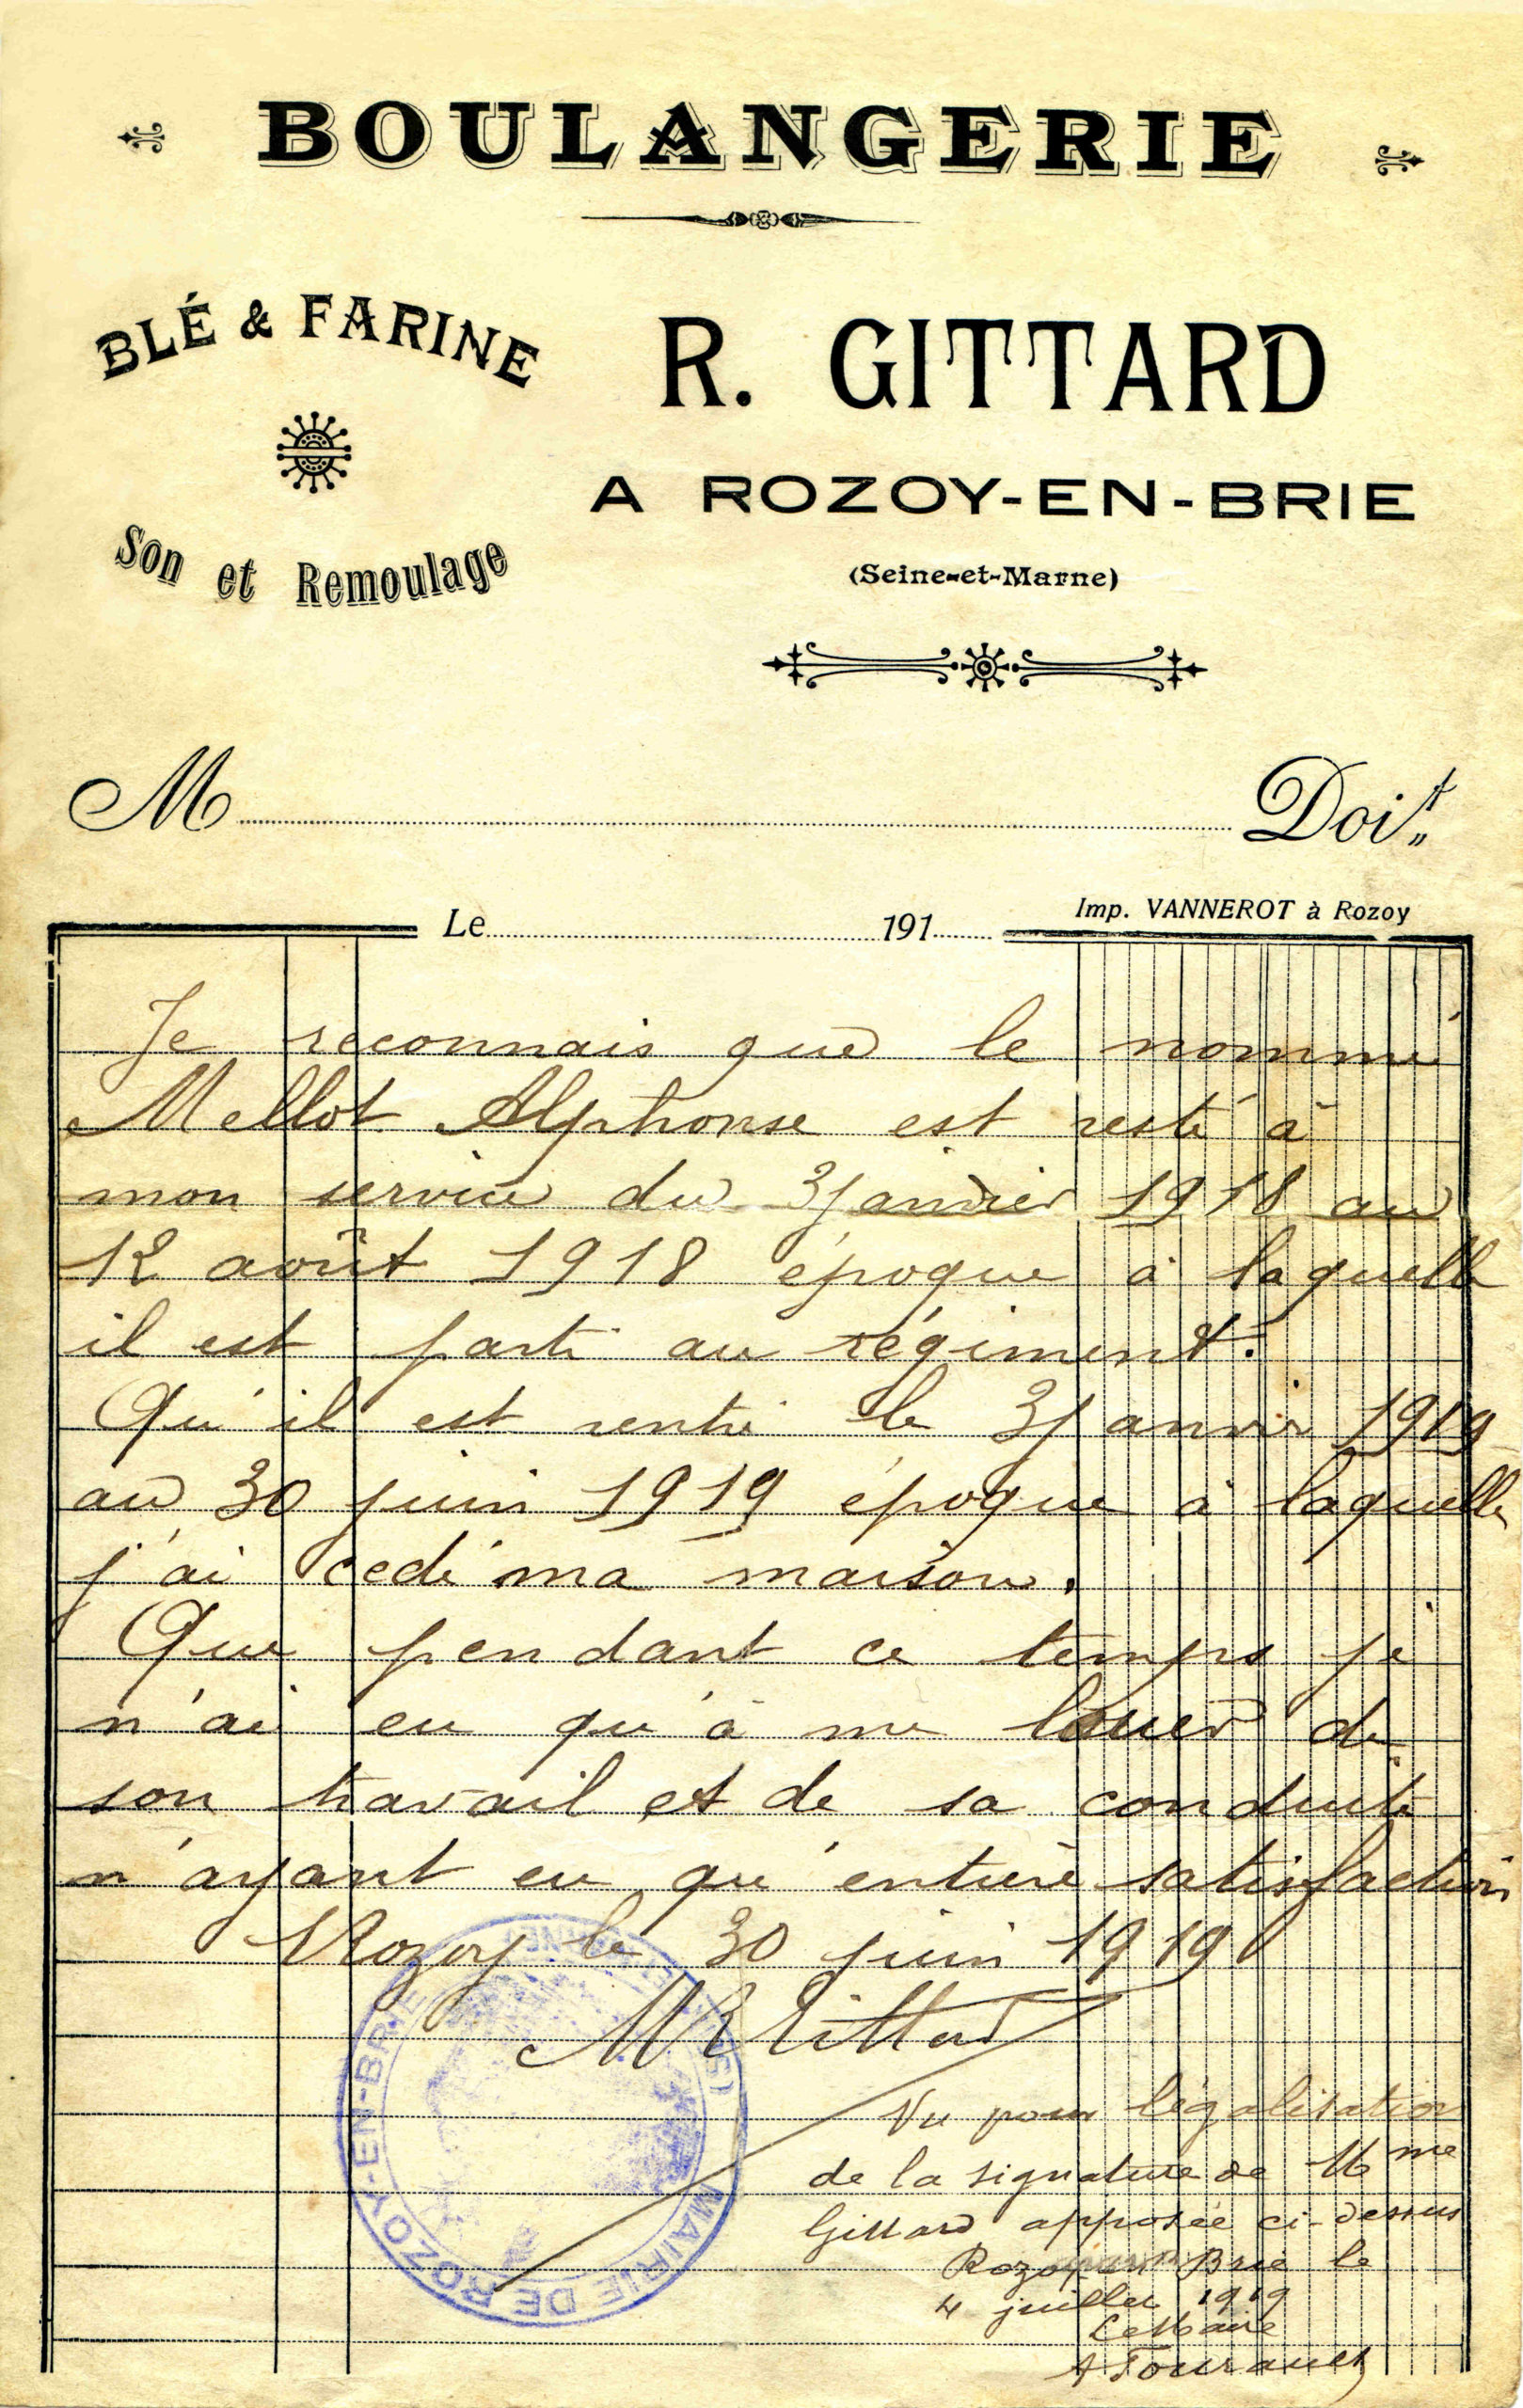 BOULANGERIE
BLÉ & FARINE
R. GITTARD
A ROZOY-EN-BRIE
Son et Remoulage
(Seine-et-Marne)
M Doit
Le 191
Imp. VANNEROT à Rozoy
Je reconnais que le nommé
Mellot Alphonse est resté à
mon service du 3 janvier 1918 au
12 août 1918 époque à laquelle
il est parti au régiment.
Qu'il est rentré le 3 janvier 1919
au 30 juin 1919 époque à laquelle
j'ai cedé ma maison.
Que pendant ce temps je
n'ai eu qu'à me louer de
son travail et de sa conduite
n'ayant eu qu'entière satisfaction
Rozoy le 30 juin 1919
Gittard
Vu pour légalisation
de la signature de Mme
Gittard apposée ci-dessus
Rozoy en Brie le
4 juillet 1919
Le Maire
MAIRIE DE ROZOY-EN-BRIE